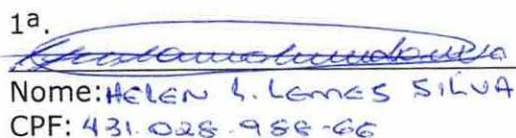 1ª.
Nome: HELEN L. LEMES SILVA
CPF: 431.028.988-66